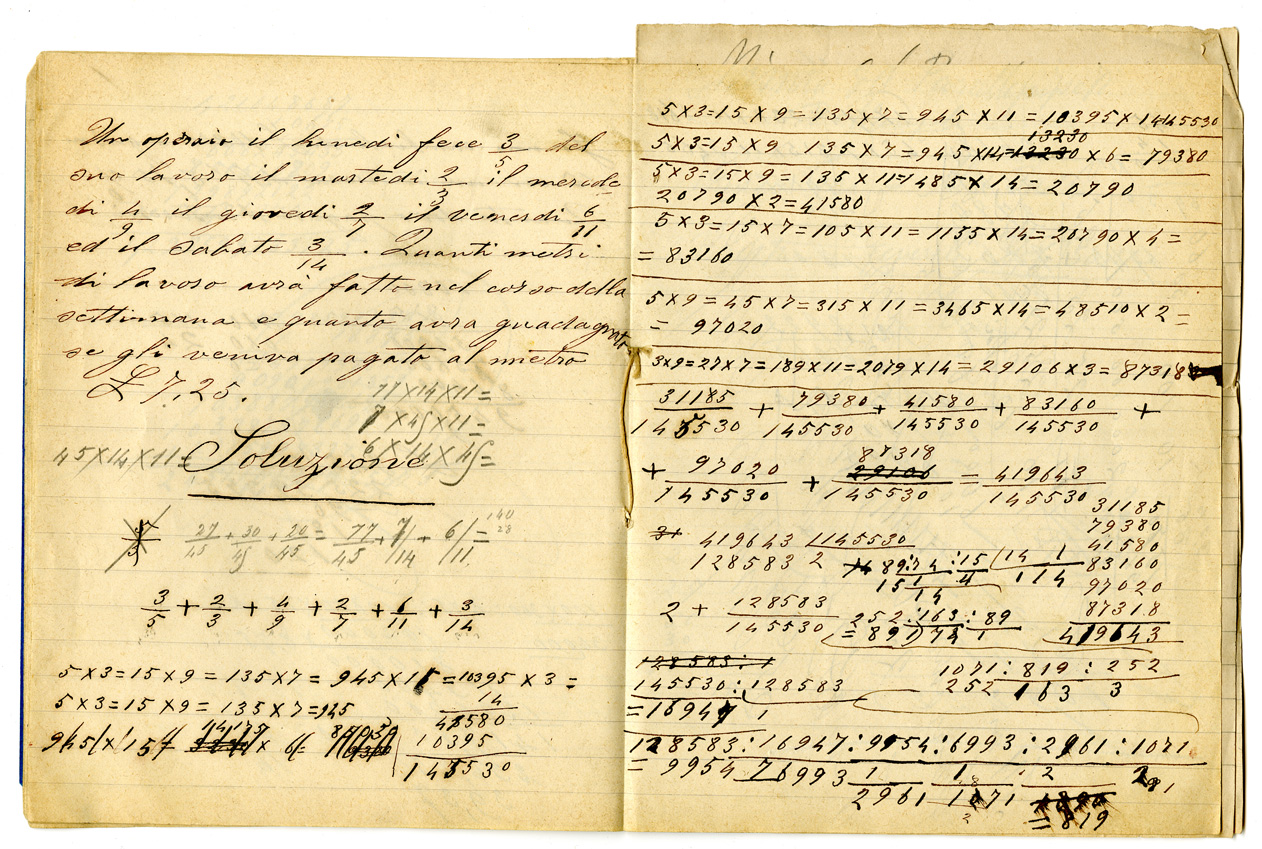 Un operaio il lunedi fece 3/5 del
suo lavoro il martedi 2/3 il mercole
di 4/9 il giovedi 2/7 il venerdi 6/11
ed il sabato 3/14. Quanti metri
di lavoro avrà fatto nel corso della
settimana e quanto avra guadagnato
se gli veniva pagato al metro
£ 7,25.
77×14×11=
7×45×11=
45×14×11=
6×14×45=
Soluzione
27/45 + 30/45 + 20/45 = 77/45 + 7/14 + 6/11 =
140
28
3/5 + 2/3 + 4/9 + 2/7 + 6/11 + 3/14
5×3=15×9=135×7=945×11=10395×3=
5×3=15×9=135×7=945
14
41580
10395
145530
5×3=15×9=135×7=945×11=10395×14=145530
13230
5×3=15×9 135×7=945×14=13230×6=79380
5×3=15×9=135×11=1485×14=20790
20790×2=41580
5×3=15×7=105×11=1155×14=20790×4=
=83160
5×9=45×7=315×11=3465×14=48510×2=
= 97020
3×9=27×7=189×11=2079×14=29106×3=87318
31185/145530 + 79380/145530 + 41580/145530 + 83160/145530 +
87318
+ 97020/145530 + 29106/145530 = 419643/145530
31185
79380
41580
83160
97020
87318
419643
419643 145530
128583 2
89:74:15 14 1
15 1 4 1 14
14
2 + 128583/145530
252:163:89
=89 74 1
128583:1
145530:128583
=16947 1
1071:819:252
252 163 3
128583:16947:9954:6993:2961:1071
=9954 7 6993 1 2961 1 1071 2
=819